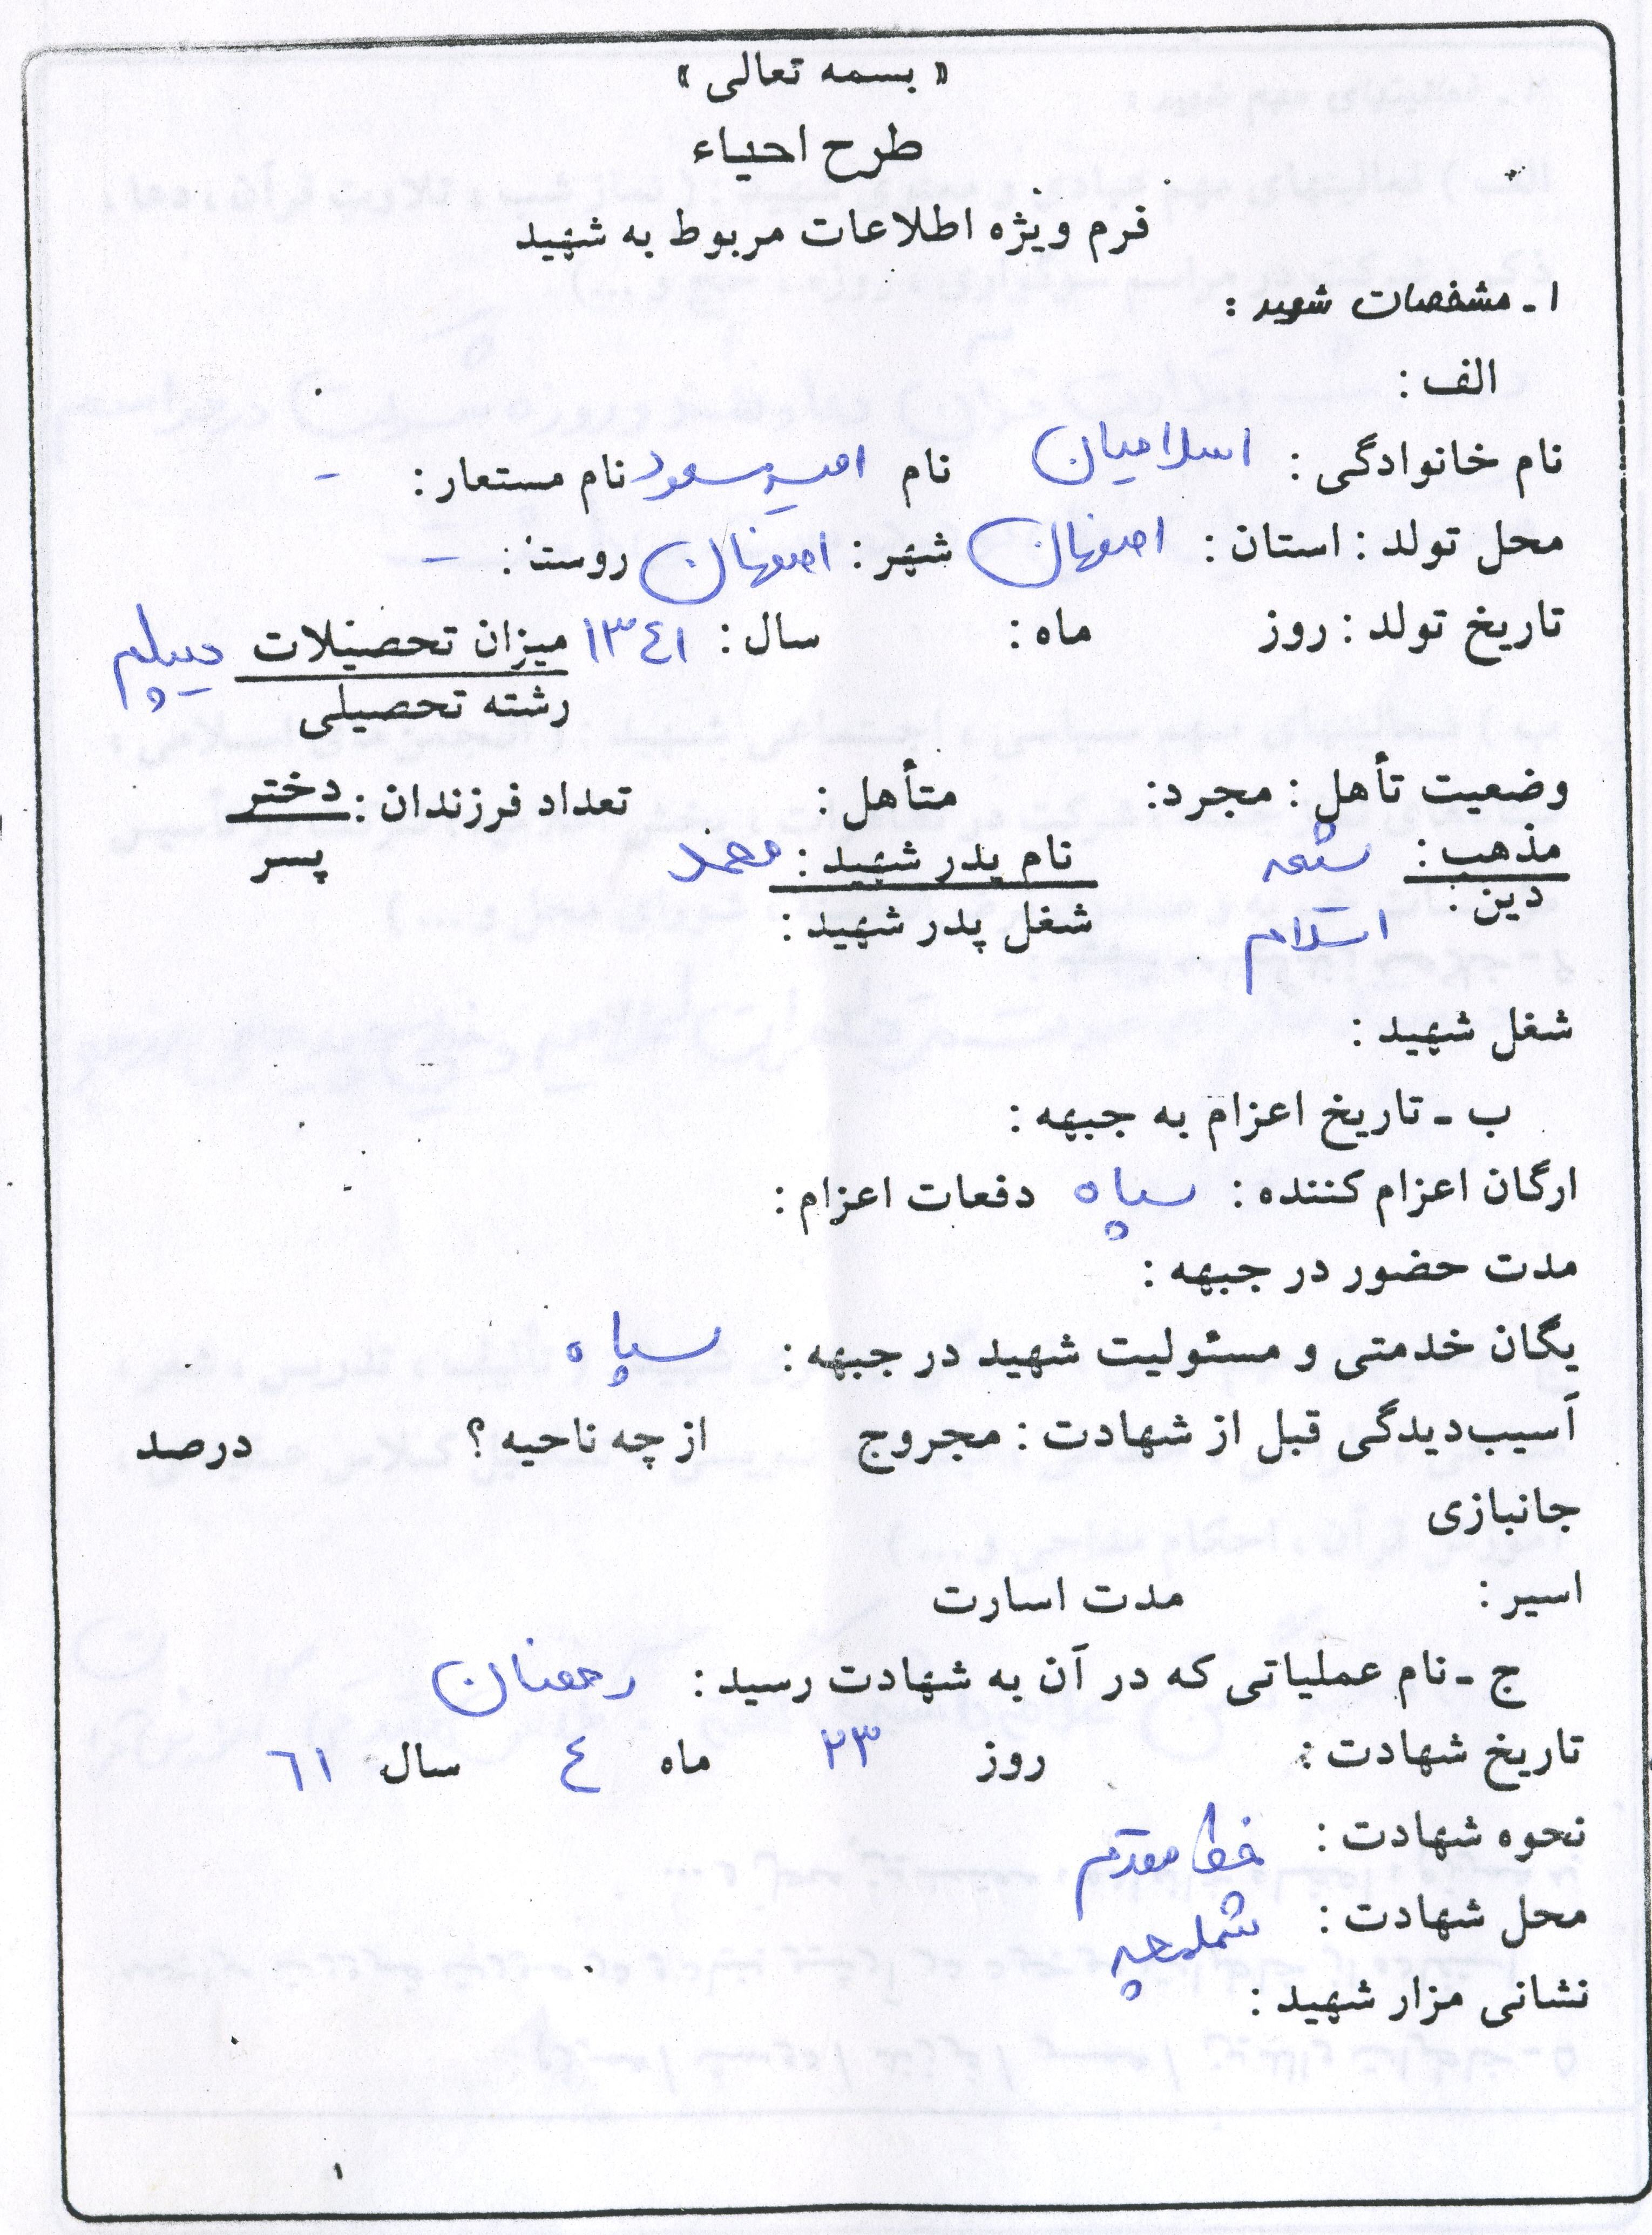 « بسمه تعالی »
طرح احیاء
فرم ویژه اطلاعات مربوط به شهید
۱ ـ مشخصات شهید :
الف :
نام خانوادگی : اسلامیان نام امیرمسعود نام مستعار : -
محل تولد : استان : اصفهان شهر : اصفهان روستا : -
تاریخ تولد : روز ماه : سال : ۱۳٤۱ میزان تحصیلات دیپلم
رشته تحصیلی
وضعیت تأهل : مجرد: متأهل : تعداد فرزندان : دختر
پسر
مذهب : شیعه نام پدر شهید : محمد
دین : اسلام شغل پدر شهید :
شغل شهید :
ب ـ تاریخ اعزام به جبهه :
ارگان اعزام کننده : سپاه دفعات اعزام :
مدت حضور در جبهه :
یگان خدمتی و مسئولیت شهید در جبهه : سپاه
آسیب‌دیدگی قبل از شهادت : مجروح از چه ناحیه ؟ درصد
جانبازی
اسیر : مدت اسارت
ج ـ نام عملیاتی که در آن به شهادت رسید : رمضان
تاریخ شهادت : روز ۲۳ ماه ٤ سال ٦۱
نحوه شهادت : خط مقدم
محل شهادت : شلمچه
نشانی مزار شهید :
۱